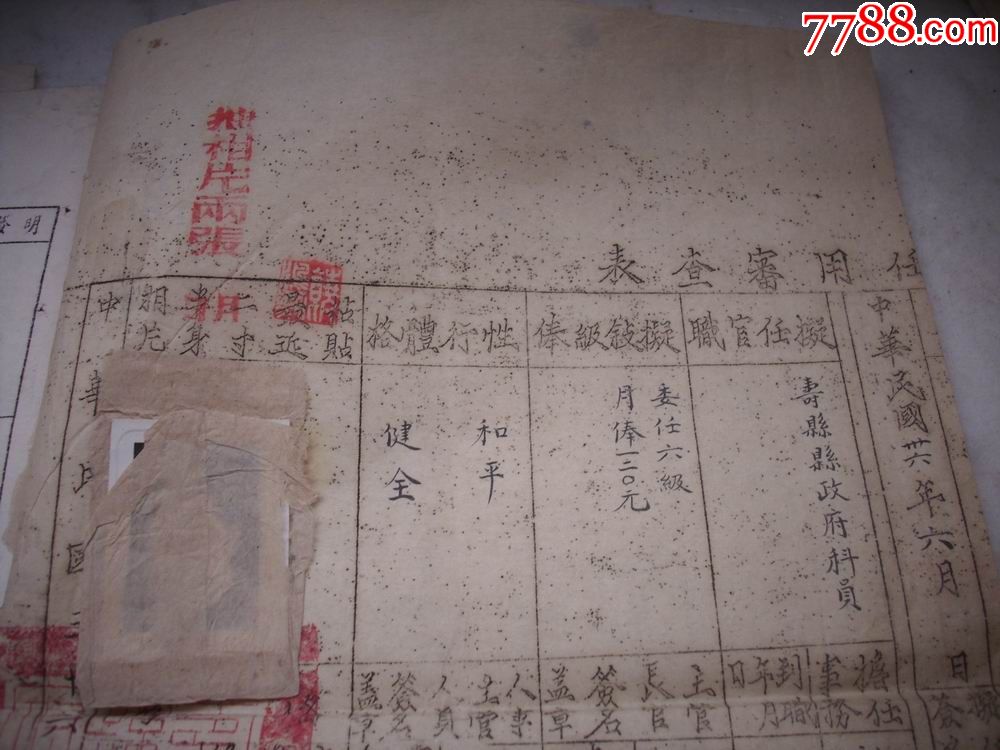 7788.com
附相片兩張
任用審查表
中華民國卅六年六月 日
擬任官職
壽縣縣政府科員
擬敍級俸
委任六級
月俸一二〇元
性行體格
和平
健全
粘貼
最近
二寸
半身
相片
中華民國
擔任
事務
到職
年月
日
主管
長官
簽名
蓋章
人事
主管
人員
簽名
蓋章
明